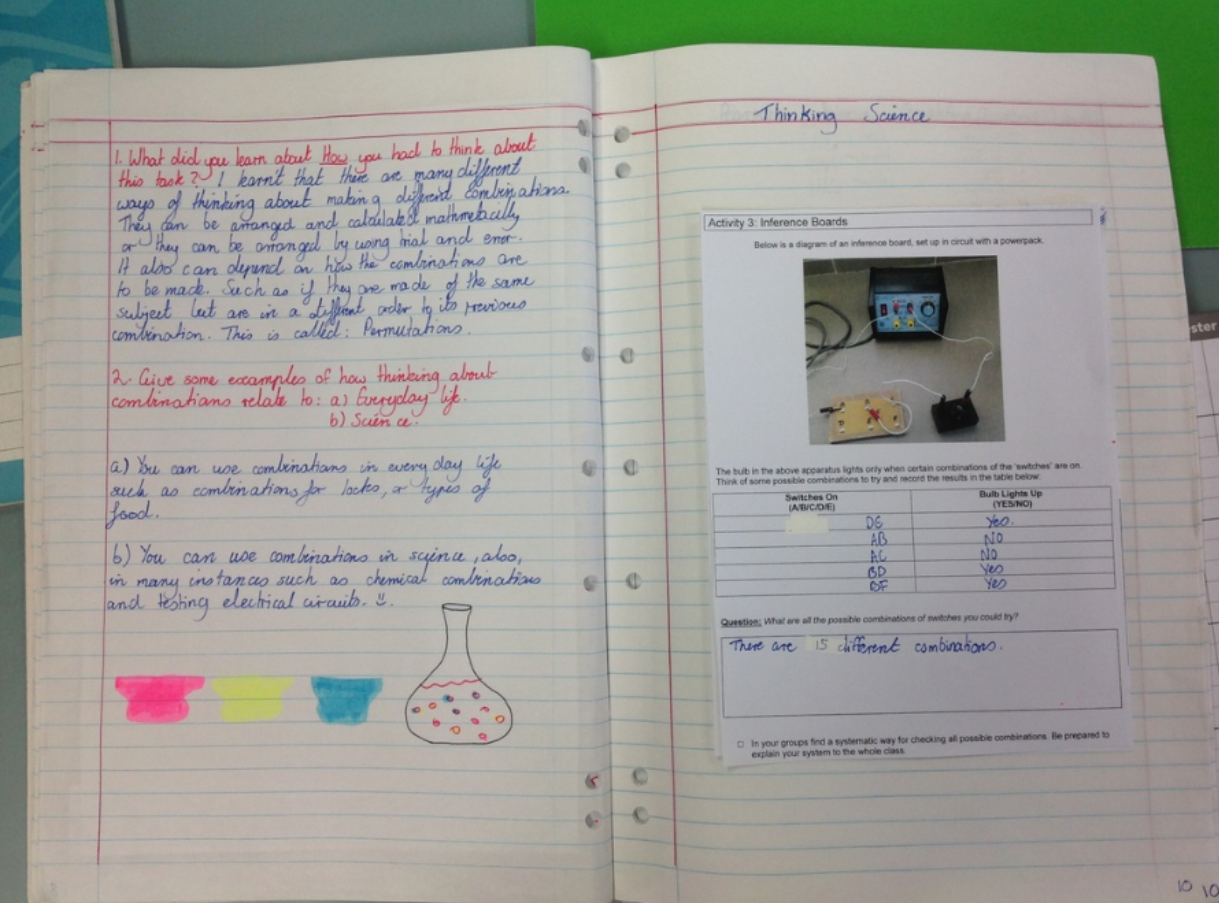 1. What did you learn about How you had to think about
this task? I learn't that there are many different
ways of thinking about making different combinations.
They can be arranged and calculated mathmetacilly
or they can be arranged by using trial and error.
It also can depend on how the combinations are
to be made. Such as if they are made of the same
subject but are in a different order to its previous
combination. This is called: Permutations.
2. Give some examples of how thinking about
combinations relate to: a) Everyday life.
b) Science.
a) You can use combinations in every day life
such as combinations for locks, or types of
food.
b) You can use combinations in science, also,
in many instances such as chemical combinations
and testing electrical circuits.
Thinking Science
Activity 3: Inference Boards
Below is a diagram of an inference board, set up in circuit with a powerpack.
The bulb in the above apparatus lights only when certain combinations of the 'switches' are on.
Think of some possible combinations to try and record the results in the table below:
Switches On Bulb Lights Up
(A/B/C/D/E) (YES/NO)
Yes.
AB NO
AC NO
BD Yes
Yes
Question: What are all the possible combinations of switches you could try?
There are 15 different combinations.
In your groups find a systematic way for checking all possible combinations. Be prepared to
explain your system to the whole class.
ster
10 10